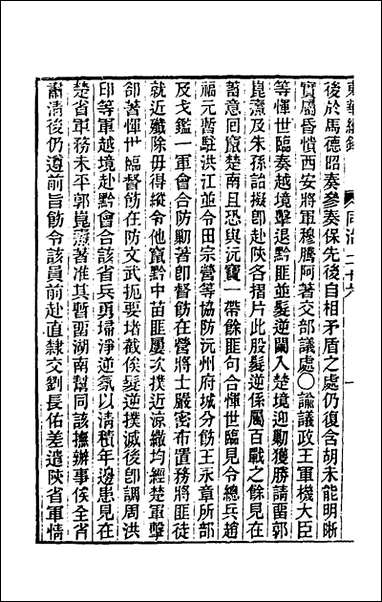 東華續錄 同治二十六 一
後於馬德昭奏參奏保先後自相矛盾之處仍復含胡未能明晰
實屬昏憒西安將軍穆騰阿著交部議處○諭議政王軍機大臣
等惲世臨奏越境擊退黔匪並髮逆闌入楚境迎勦獲勝請留郭
崑燾及朱孫詒擬卽赴陝各摺片此股髮逆係屬百戰之餘見在
蓄意回竄楚南且恐與沅寶一帶餘匪句合惲世臨見令總兵趙
福元暫駐洪江並令田宗營等協防沅州府城分飭王永章所部
及戈鑑一軍會合防勦著卽督飭在營將士嚴密布置務將匪徒
就近殲除毋得縱令他竄黔中苗匪屢次撲近涼繳均經楚軍擊
卻著惲世臨督飭在防文武扼要堵截俟髮逆撲滅後卽調周洪
印等軍越境赴黔會合該省兵勇掃淨逆氛以清積年邊患見在
楚省軍務未平郭崑燾著准其暫留湖南幫同該撫辦事俟全省
肅清後仍遵前旨飭令該員前赴直隸交劉長佑差遣陝省軍情